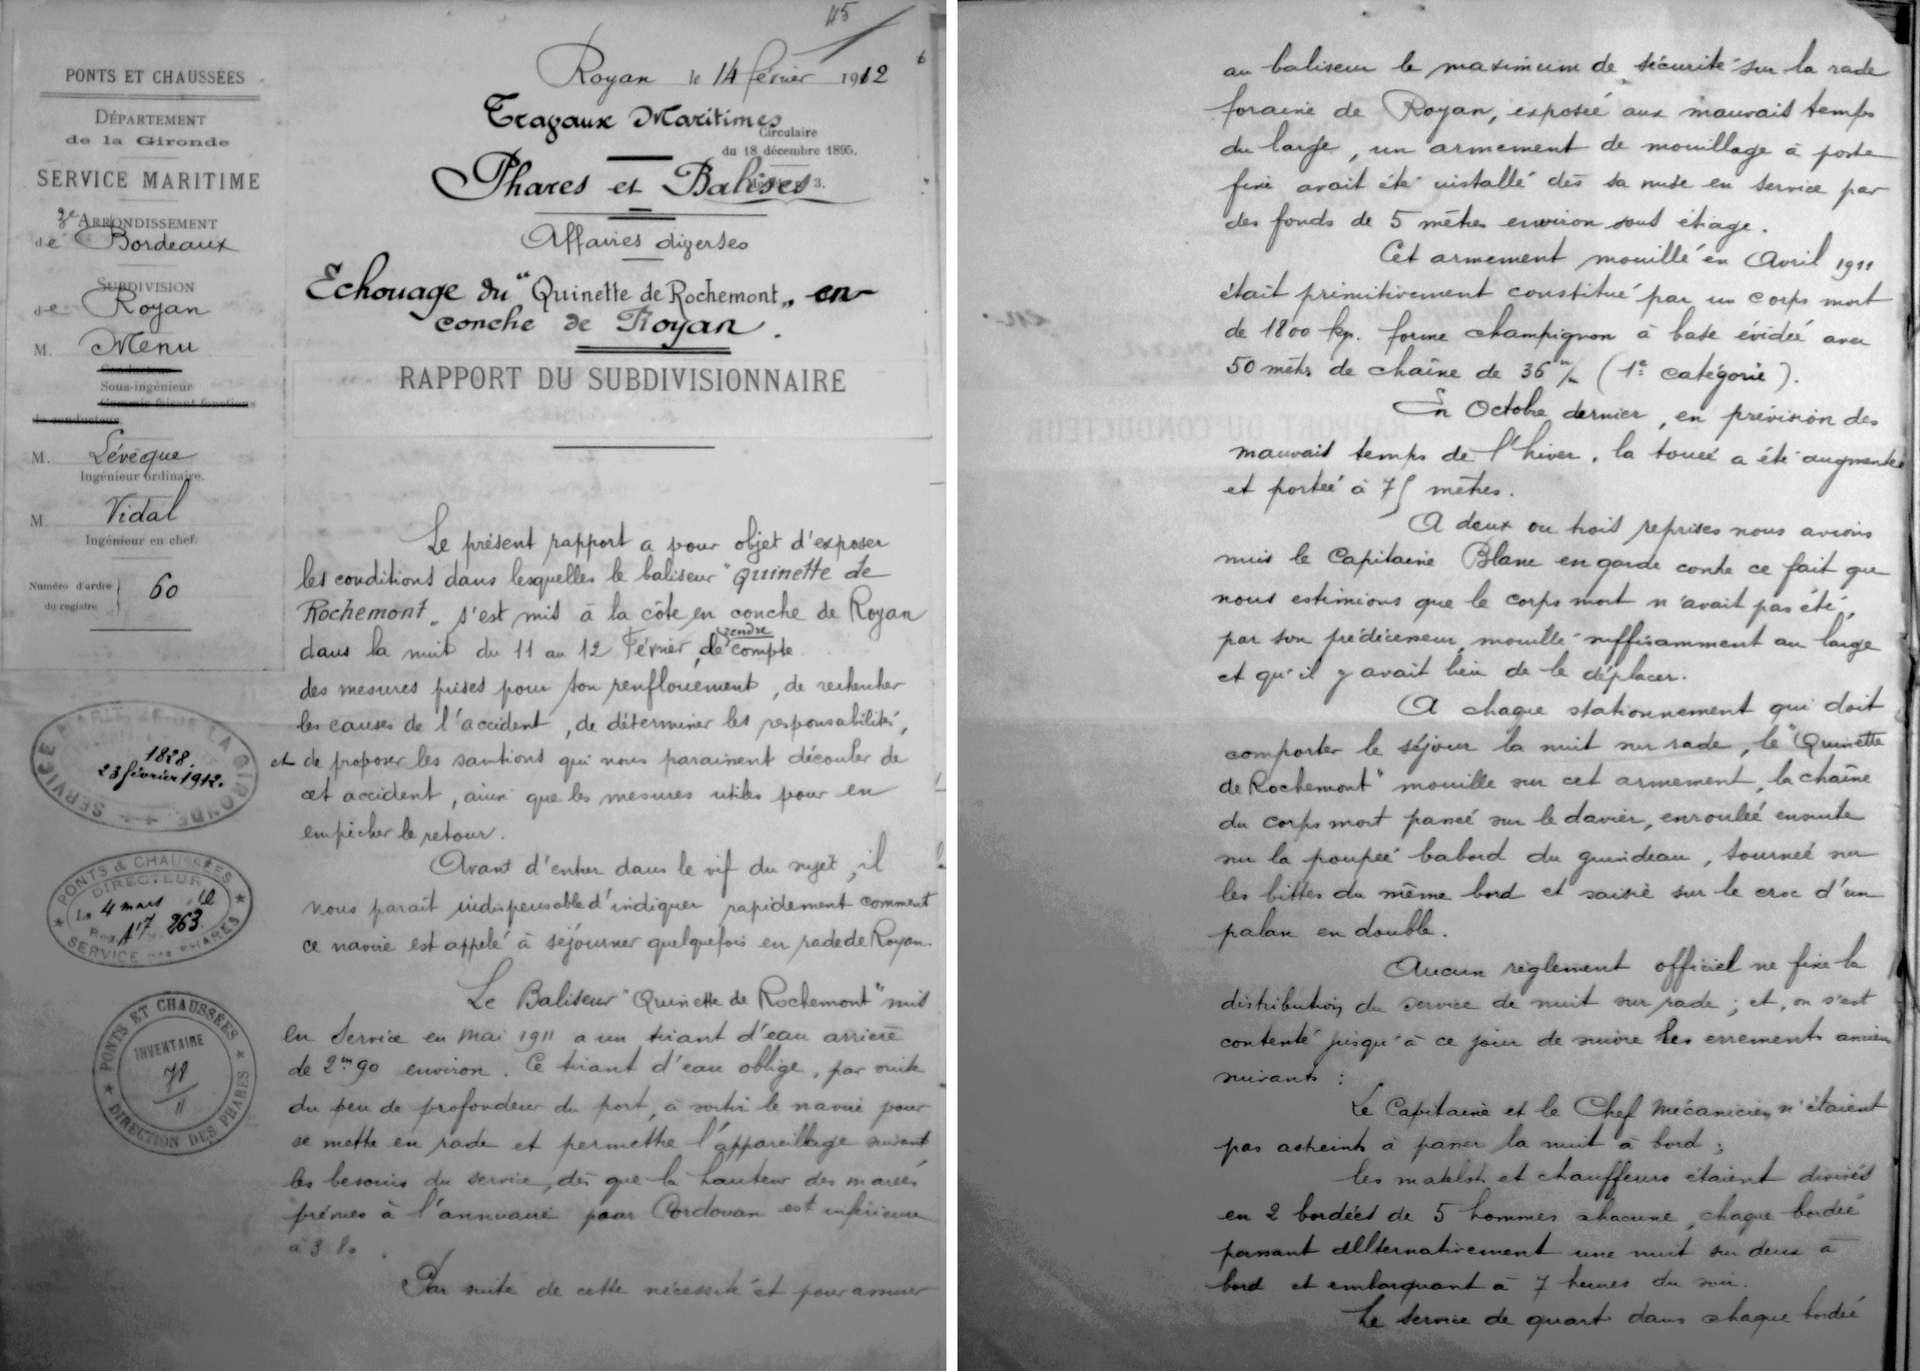 45
PONTS ET CHAUSSÉES
DÉPARTEMENT
de la Gironde
SERVICE MARITIME
3e ARRONDISSEMENT
de Bordeaux
SUBDIVISION
de Royan
M. Menu
Conducteur
Sous-ingénieur
Commis faisant fonctions
de conducteur
M. Lévêque
Ingénieur ordinaire.
M. Vidal
Ingénieur en chef.
Numéro d'ordre
du registre
60
SERVICE MARITIME DE LA GIRONDE
1828.
23 février 1912.
PONTS & CHAUSSÉES
DIRECTEUR
Le 4 mars
Reg A17 263
SERVICE DES PHARES
PONTS ET CHAUSSÉES
INVENTAIRE
78
11
DIRECTION DES PHARES
Royan le 14 février 1912
Travaux Maritimes
Circulaire
du 18 décembre 1895.
Phares et Balises
3.
Affaires diverses
Echouage du "Quinette de Rochemont" en
conche de Royan.
RAPPORT DU SUBDIVISIONNAIRE
Le présent rapport a pour objet d'exposer
les conditions dans lesquelles le baliseur "Quinette de
Rochemont" s'est mis à la côte en conche de Royan
dans la nuit du 11 au 12 Février, de rendre compte
des mesures prises pour son renflouement, de rechercher
les causes de l'accident, de déterminer les responsabilités,
et de proposer les sanctions qui nous paraissent découler de
cet accident, ainsi que les mesures utiles pour en
empêcher le retour.
Avant d'entrer dans le vif du sujet, il
nous paraît indispensable d'indiquer rapidement comment
ce navire est appelé à séjourner quelquefois en rade de Royan.
Le Baliseur "Quinette de Rochemont" mis
en service en mai 1911 a un tirant d'eau arrière
de 2m90 environ. Ce tirant d'eau oblige, par suite
du peu de profondeur du port, à sortir le navire pour
se mettre en rade et permettre l'appareillage suivant
les besoins du service, dès que la hauteur des marées
prévues à l'annuaire pour Cordouan est inférieure
à 3.80.
Par suite de cette nécessité et pour assurer
au baliseur le maximum de sécurité sur la rade
foraine de Royan, exposée aux mauvais temps
du large, un armement de mouillage à poste
fixe avait été installé dès sa mise en service par
des fonds de 5 mètres environ sous étiage.
Cet armement mouillé en Avril 1911
était primitivement constitué par un corps mort
de 1800 kg. forme champignon à base évidée avec
50 mèts de chaîne de 36 m/m (1e catégorie).
En Octobre dernier, en prévision des
mauvais temps de l'hiver, la touée a été augmentée
et portée à 75 mètres.
A deux ou trois reprises nous avions
mis le Capitaine Blanc en garde contre ce fait que
nous estimions que le corps mort n'avait pas été,
par son prédécesseur, mouillé suffisamment au large
et qu'il y avait lieu de le déplacer.
A chaque stationnement qui doit
comporter le séjour la nuit sur rade, le "Quinette
de Rochemont" mouille sur cet armement, la chaîne
du corps mort passée sur le davier, enroulée ensuite
sur la poupée babord du guindeau, tournée sur
les bittes du même bord et saisie sur le croc d'un
palan en double.
Aucun règlement officiel ne fixe la
distribution du service de nuit sur rade; et, on s'est
contenté jusqu'à ce jour de suivre les errements anciens
suivants :
Le Capitaine et le Chef Mécanicien n'étaient
pas astreints à passer la nuit à bord;
les matelots et chauffeurs étaient divisés
en 2 bordées de 5 hommes chacune, chaque bordée
passant alternativement une nuit sur deux à
bord et embarquant à 7 heures du soir.
Le service de quart dans chaque bordée